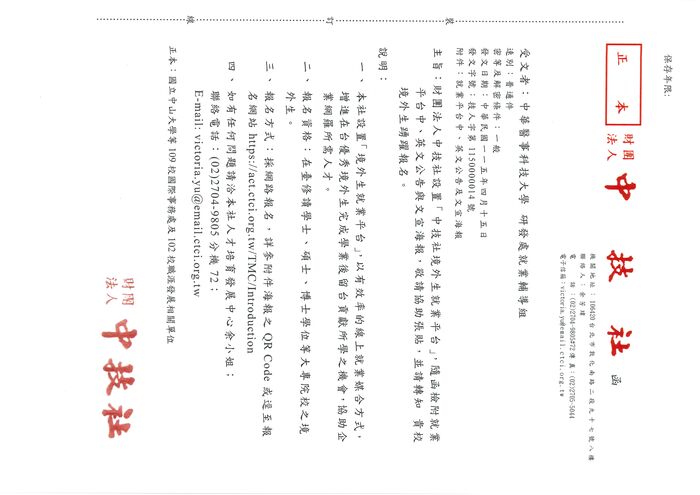 保存年限：
正本
財團法人 中技社 函
機關地址：106420台北市敦化南路二段九十七號八樓
聯絡人：余芳瑋
電話：(02)2704-9805#72 傳真：(02)2705-5044
電子信箱：victoria.yu@email.ctci.org.tw
受文者：中華醫事科技大學 研發處就業輔導組
速別：普通件
密等及解密條件：一般
發文日期：中華民國一一五年四月十五日
發文字號：技人字第1150000014號
附件：就業平台中、英文公告及文宣海報
主旨：財團法人中技社設置「中技社境外生就業平台」，隨函檢附就業
平台中、英文公告與文宣海報，敬請協助張貼，並請轉知 貴校
境外生踴躍報名。
說明：
一、本社設置「境外生就業平台」，以有效率的線上就業媒合方式，
增進在台優秀境外生完成學業後留台貢獻所學之機會，協助企
業網羅所需人才。
二、報名資格：在臺修讀學士、碩士、博士學位等大專院校之境
外生。
三、報名方式：採網路報名，詳參附件海報之 QR Code 或逕至報
名網站 https://act.ctci.org.tw/TMC/Introduction
四、如有任何問題請洽本社人才培育發展中心余小姐；
聯絡電話：(02)2704-9805 分機 72；
E-mail: victoria.yu@email.ctci.org.tw
正本：國立中山大學等109校國際事務處及102校職涯發展相關單位
財團法人 中技社
裝
訂
線